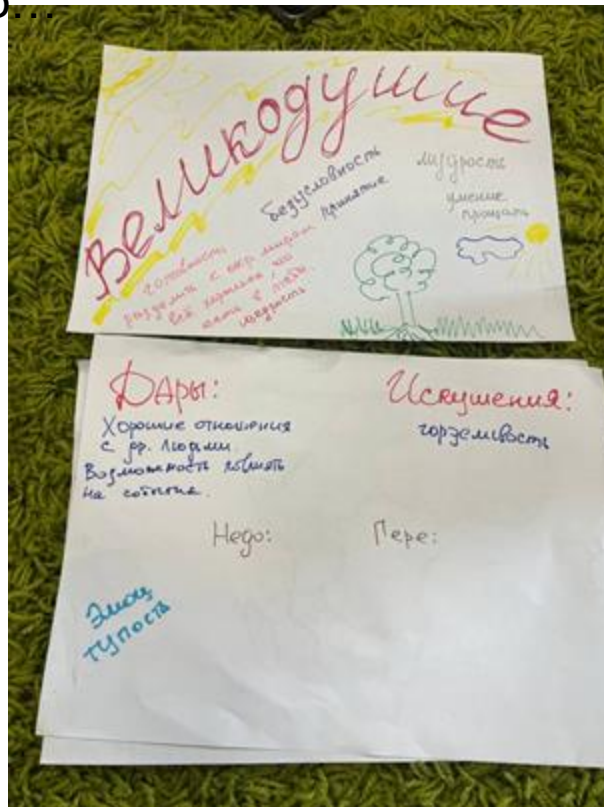 Великодушие
безусловность
принятие
мудрость
умение
прощать
готовность
разделить с окр. миром
всё хорошее, что
есть в тебе.
щедрость
Дары:
Хорошие отношения
с др. людьми
Возможность влиять
на события.
Искушения:
горделивость
Недо:
Пере:
Эмоц
тупость